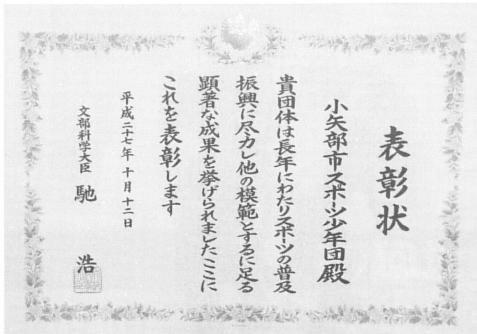 表彰状
小矢部市スポーツ少年団殿
貴団体は長年にわたりスポーツの普及
振興に尽力し他の模範とするに足る
顕著な成果を挙げられましたここに
これを表彰します
平成二十七年十月十二日
文部科学大臣 馳 浩